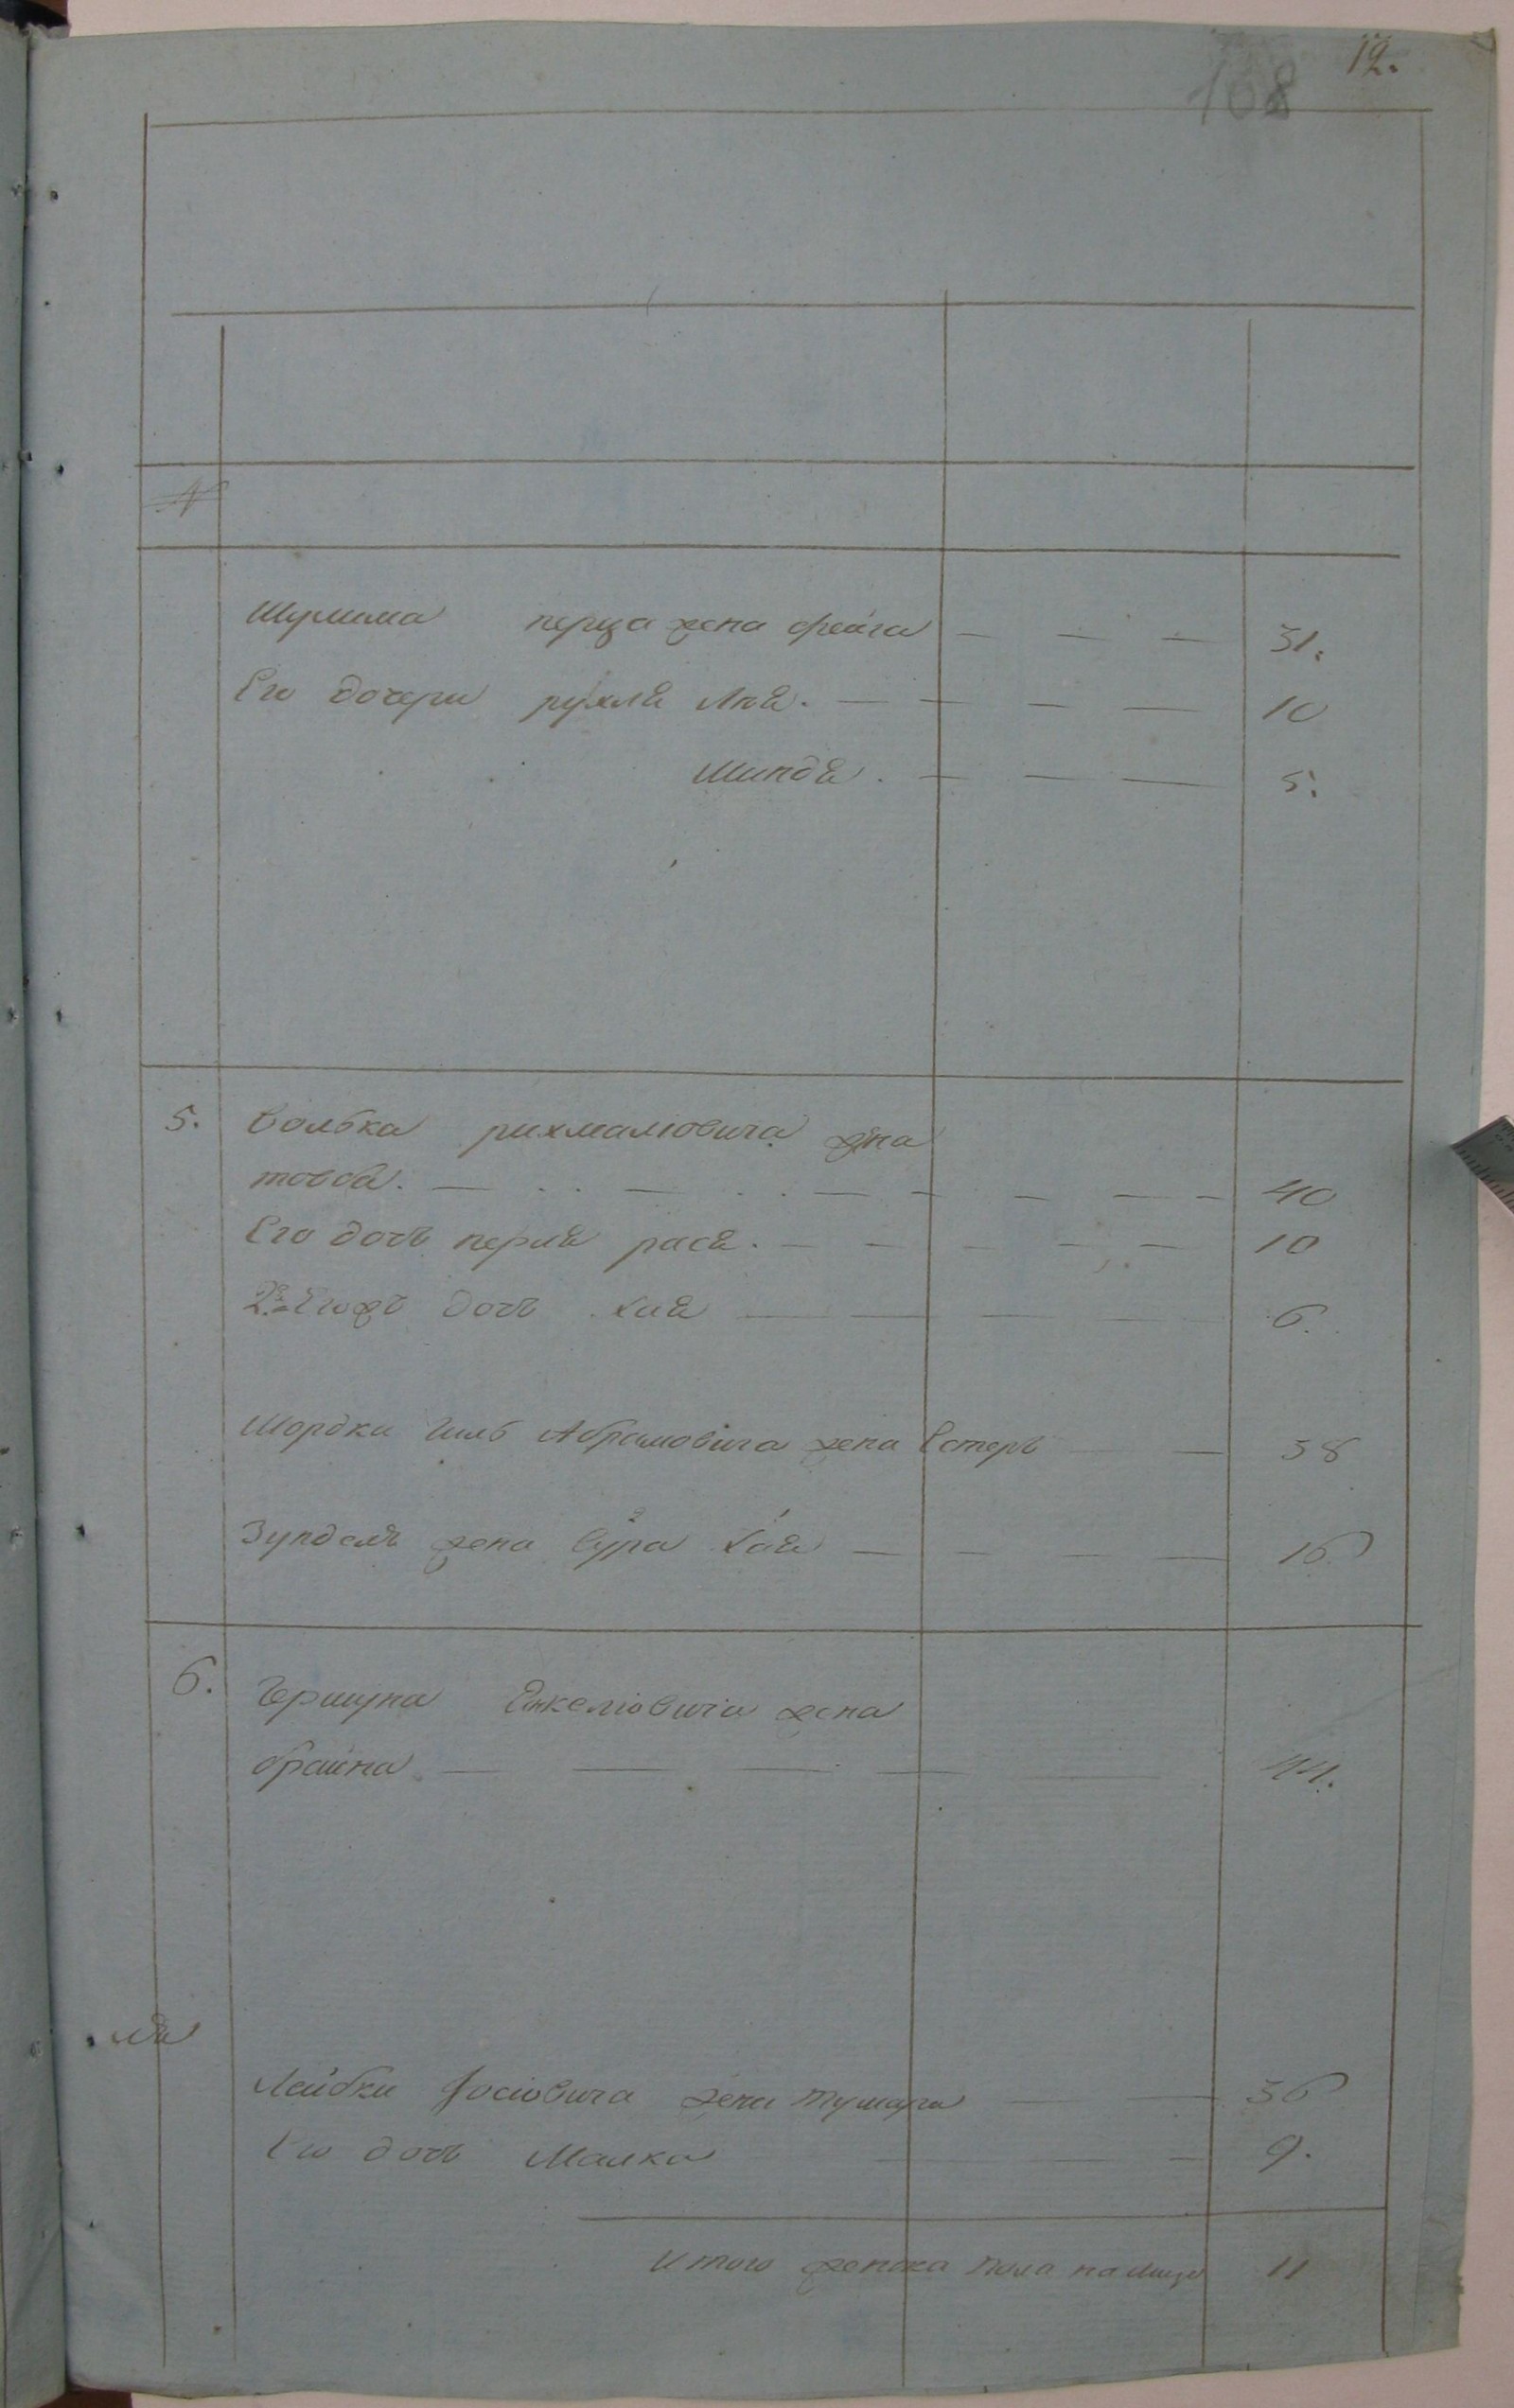 12.
168
№
Шулима перца жена фейга — — — 31.
Его дочери рухля Лія. — — — — 10
Минда. — — — 5.
5. Волька рихмаліовича жена
товба. — — — — — — — 40
Его дочь перля рася. — — — — — 10
2я Егожъ дочь хая — — — — — 6.
Мордки Гиль Абрамовича жена Естеръ — — 38
Зундель жена Сура хая — — — — 16
6. Гершуна Янкеліовича жена
браина — — — — — 44.
Лейбки Іосіовича жена тумара — — 36
Его дочь Малка — — — 9.
Итого женска пола на лицо 11